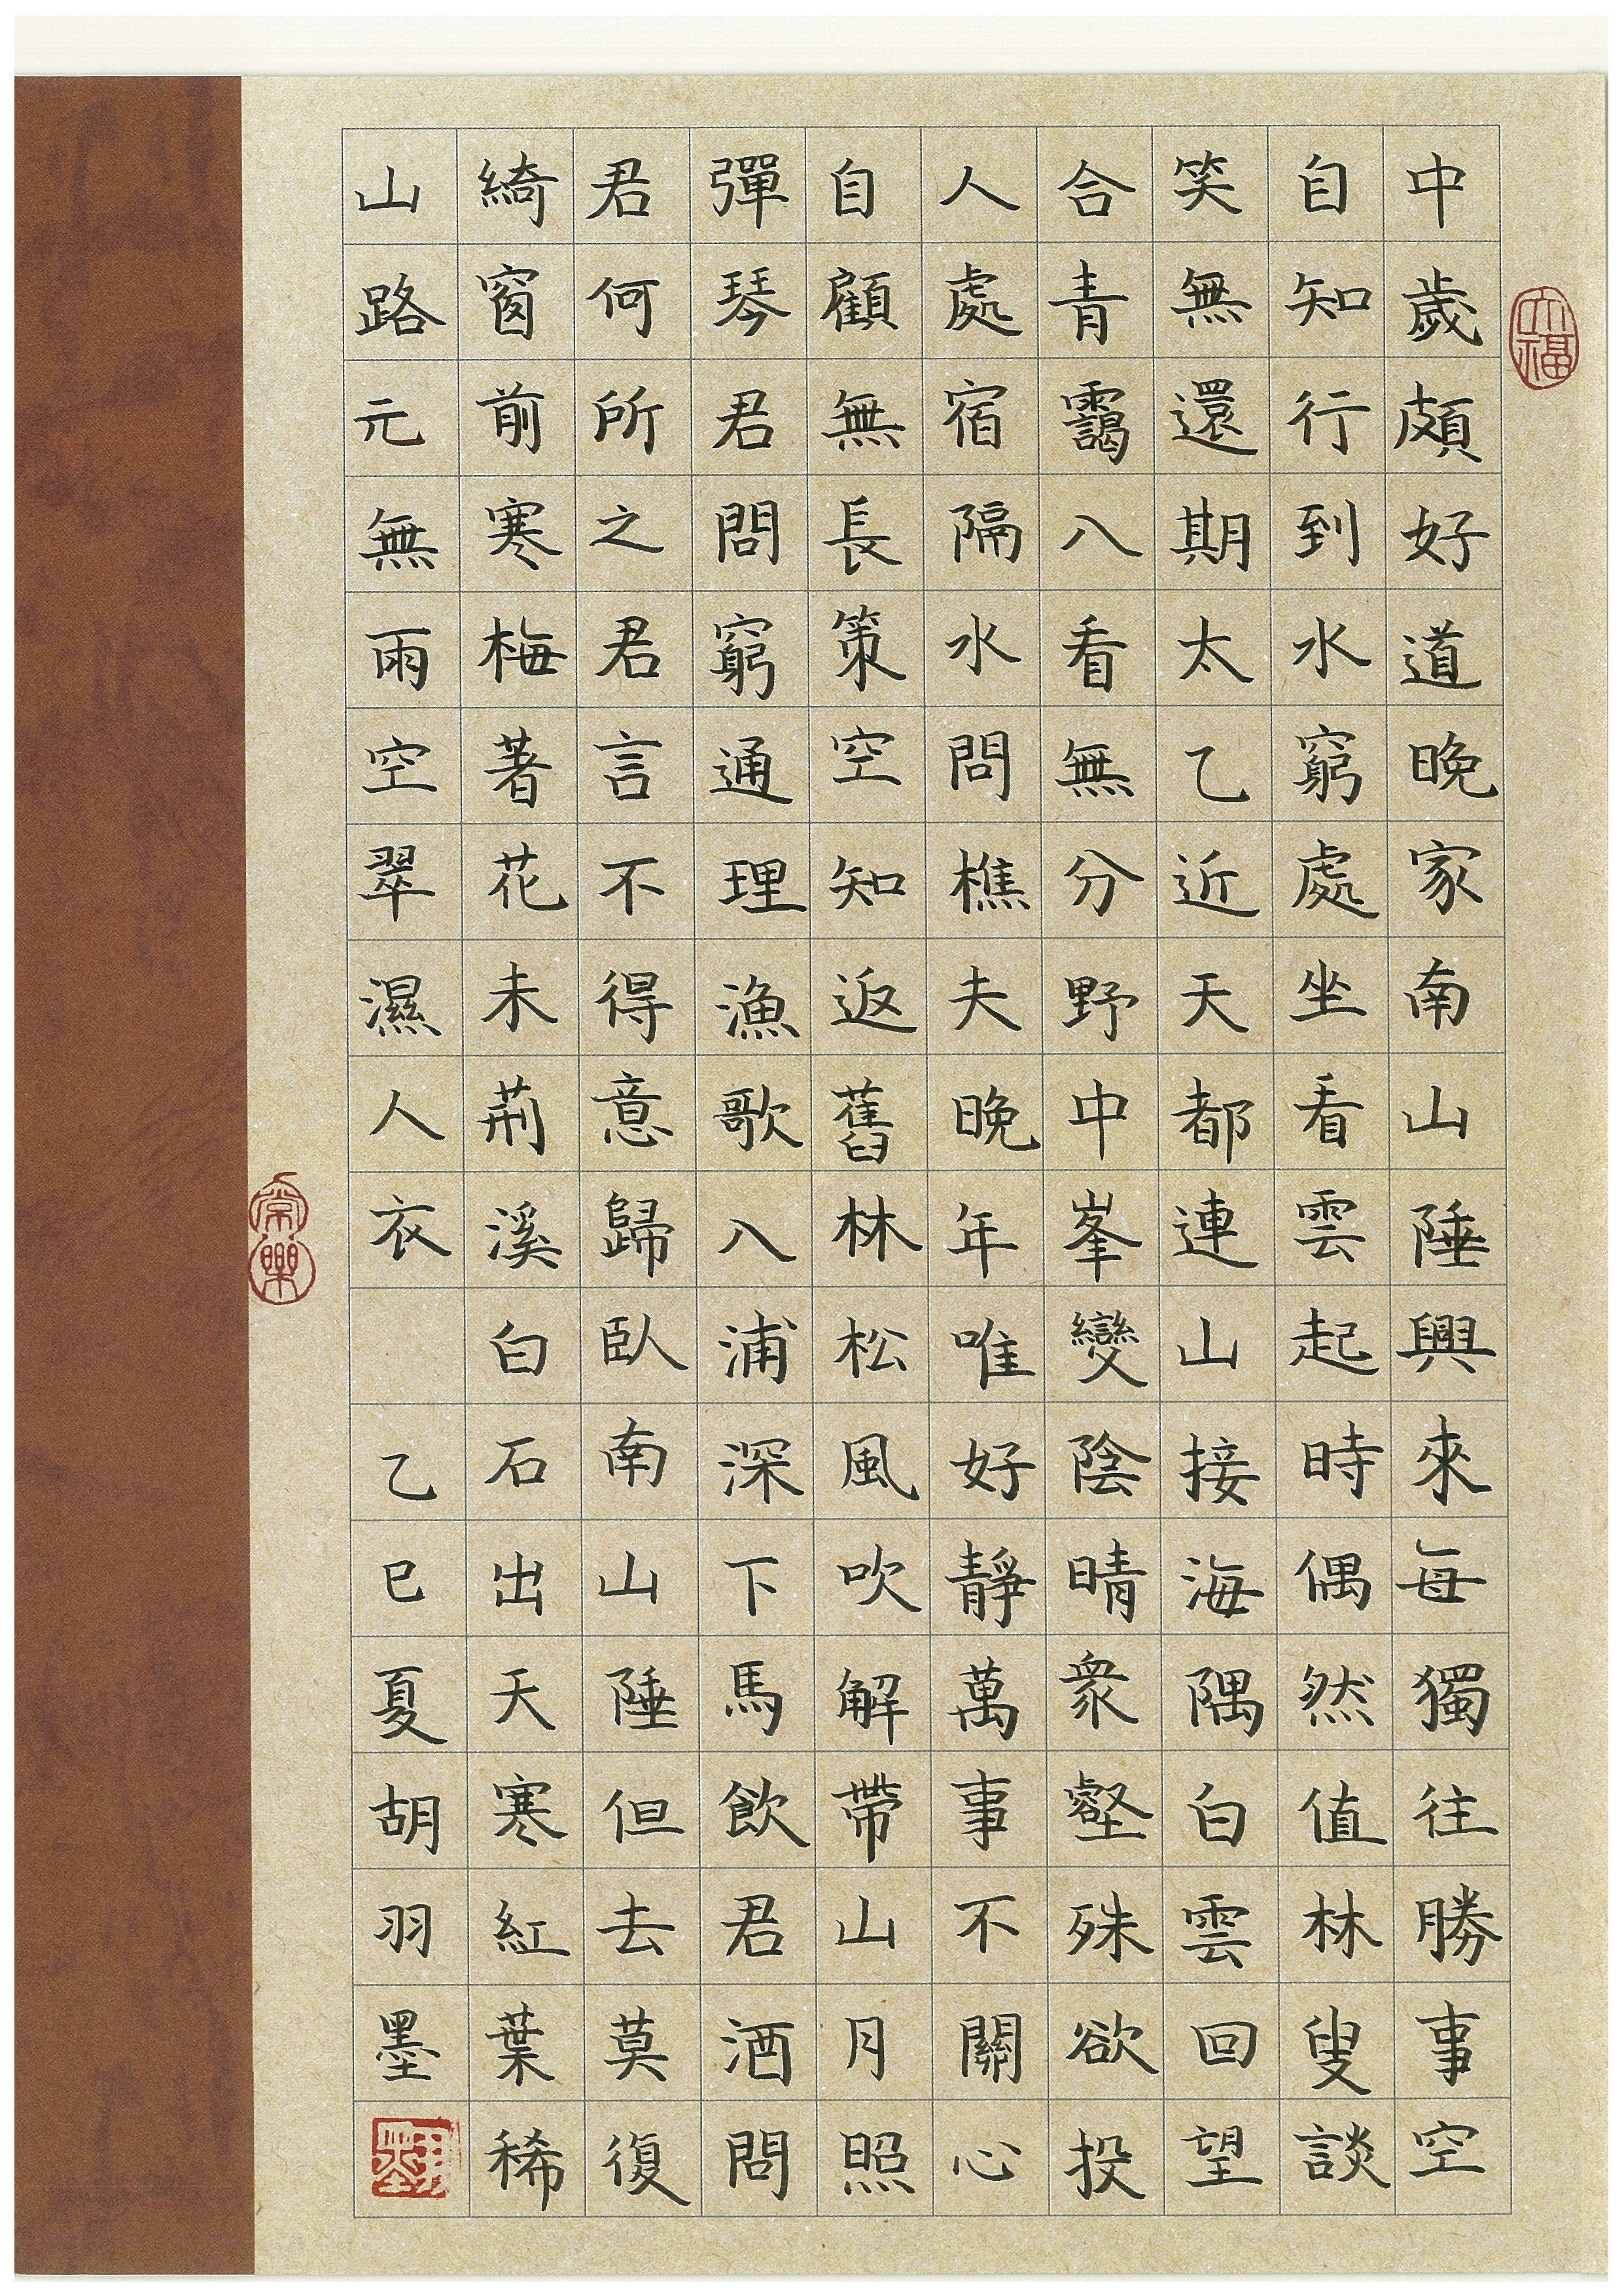 中歲頗好道晚家南山陲興來每獨往勝事空
自知行到水窮處坐看雲起時偶然值林叟談
笑無還期太乙近天都連山接海隅白雲回望
合青靄入看無分野中峯變陰晴衆壑殊欲投
人處宿隔水問樵夫晚年唯好靜萬事不關心
自顧無長策空知返舊林松風吹解帶山月照
彈琴君問窮通理漁歌入浦深下馬飲君酒問
君何所之君言不得意歸臥南山陲但去莫復
綺窗前寒梅著花未荊溪白石出天寒紅葉稀
山路元無雨空翠濕人衣
乙巳夏胡羽墨
六福
常樂